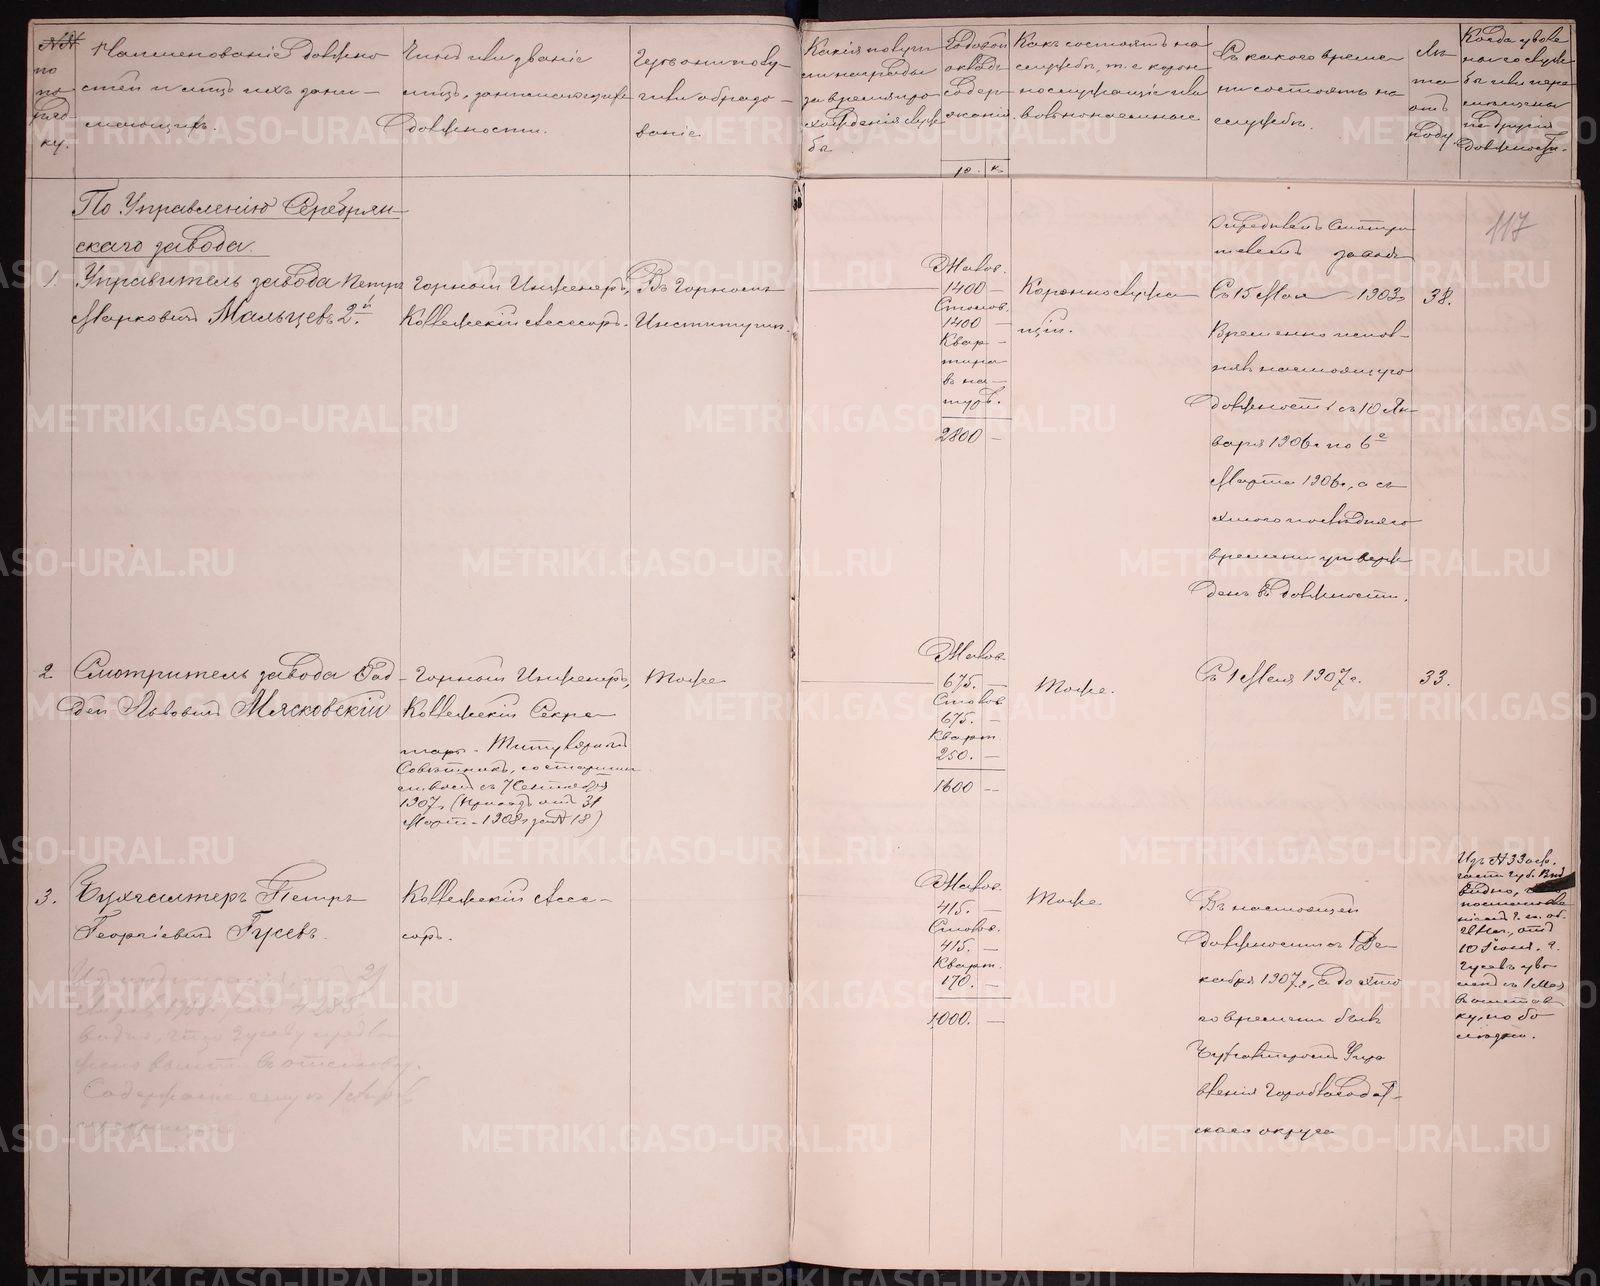 №№ по поряд-ку.
Наименованіе должно-
стей и лицъ ихъ зани-
мающихъ.
Чинъ или званіе
лицъ, занимающихъ
должности.
Гдѣ они полу-
чили образо-
ваніе.
Какія получи
ли награды
за время про-
хожденія служ
бы
Годовой
окладъ
содер-
жанія.
р. к.
Какъ состоятъ на
службѣ, т. е. корон-
нослужащіе или
вольнонаемные
Съ какого време-
ни состоятъ на
службѣ.
Лѣ-
та
отъ
роду.
Когда уволе
ны со служ
бы или пере
мѣщены
на другія
должности.
117
По Управленію Серебрян-
скаго завода.
1. Управитель завода Петръ
Марковичъ Мальцевъ 2й
Горный Инженеръ,
Коллежскій Ассесоръ.
Въ Горномъ
Институтѣ.
Жалов.
1400 —
Столов.
1400 —
Квар-
тира
въ на-
турѣ.
2800 —
Коронослужа
щій.
Опредѣленъ Смотри
телемъ завода
Съ 15 Мая 1903г.
Временно испол-
нялъ настоящую
должность съ 10 Ян-
варя 1906г. по 6е
Марта 1906г., а съ
этого послѣдняго
времени утверж-
денъ въ должности.
38.
2 Смотритель завода Фад-
дей Львовичъ Мясковскій
Горный Инженеръ,
Коллежскій Секре-
тарь. Титулярный
Совѣтникъ, со старшин
ствомъ съ 7 Сентября
1907г. (Приказъ отъ 31
Марта 1908г. за № 18)
Тоже
Жалов.
675. —
Столов.
675. —
Кварт.
250. —
1600 —
Тоже.
Съ 1 Мая 1907г.
33.
3. Бухгалтеръ Петръ
Георгіевичъ Гусевъ.
Коллежскій Ассе-
соръ.
Жалов.
415. —
Столов.
415. —
Кварт.
170. —
1000. —
Тоже
Въ настоящей
должности съ 1 Де-
кабря 1907г., а до это
го времени былъ
Бухгалтеромъ Упра
вленія Гороблагодат-
скаго округа
Изъ № 33 оф.
части Губ. Вѣд
видно, что
постановле
ніемъ
10 Іюня.
Гусевъ уво
ленъ съ 1 Мая
въ отстав
ку, по бо
лѣзни.
видно, что Гусеву предло
жено выйти въ отставку.
Содержаніе ему съ 1
METRIKI.GASO-URAL.RU